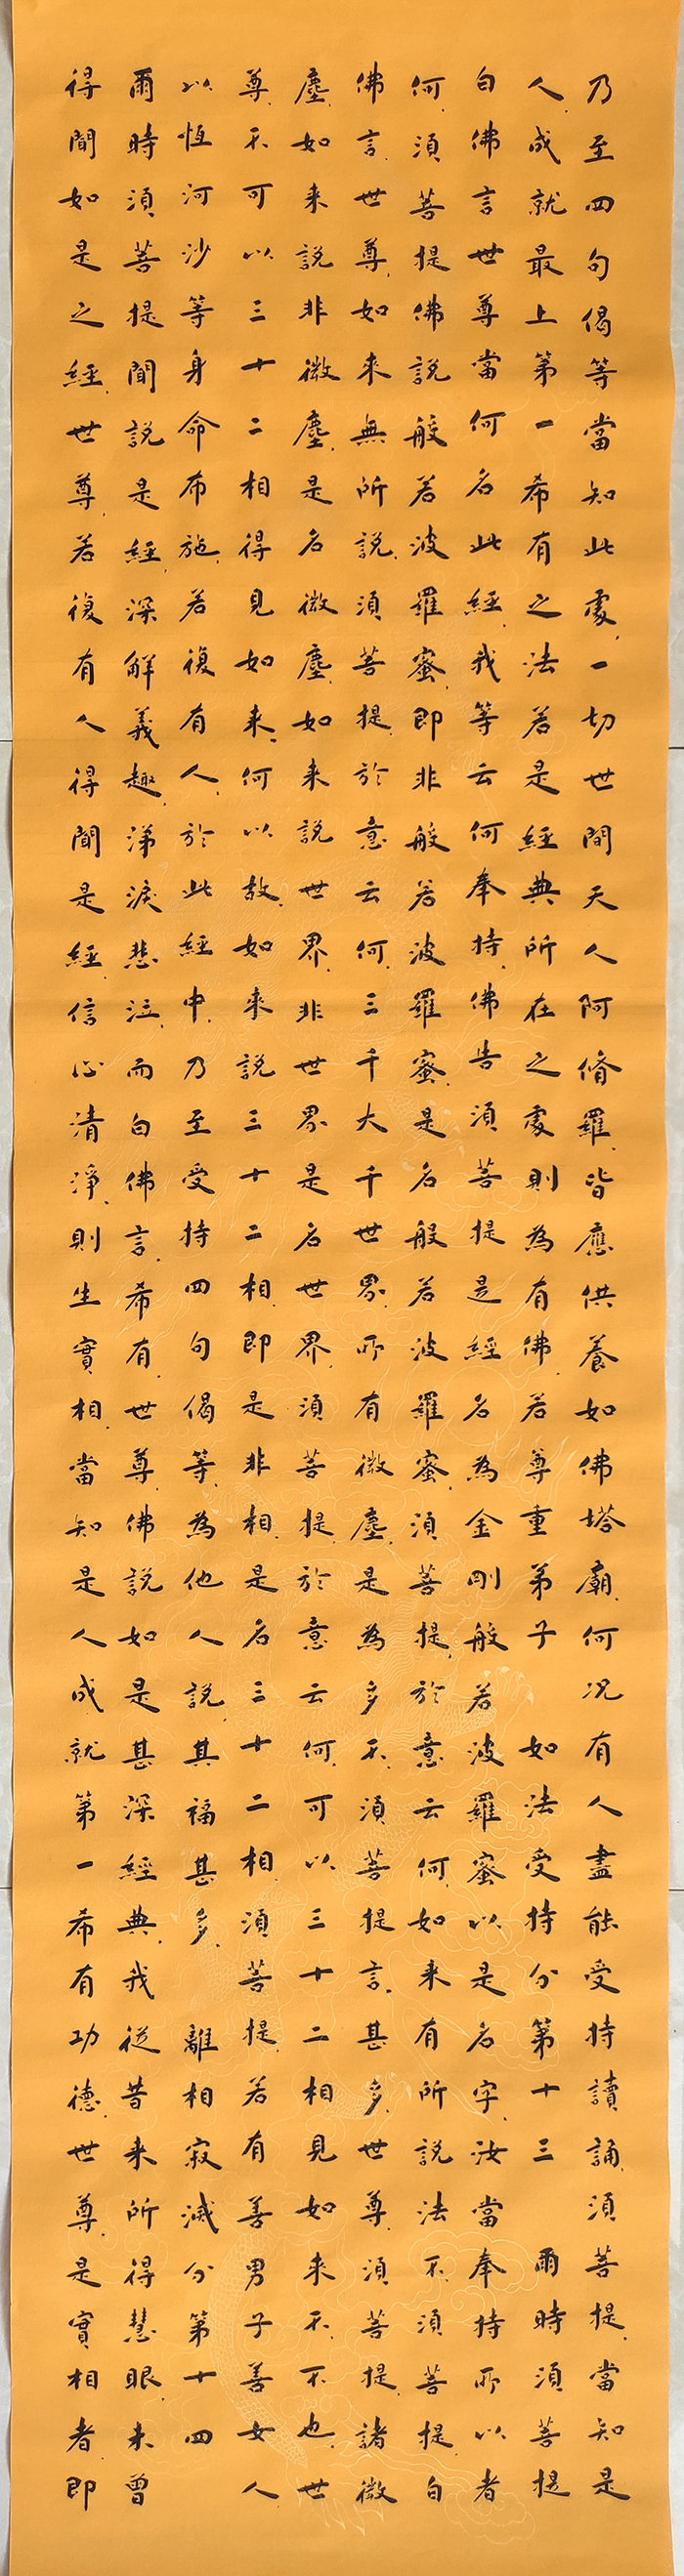 乃至四句偈等當知此處一切世間天人阿脩羅皆應供養如佛塔廟何况有人盡能受持讀誦須菩提當知是
人成就最上第一希有之法若是經典所在之處則為有佛若尊重弟子 如法受持分第十三 爾時須菩提
白佛言世尊當何名此經我等云何奉持佛告須菩提是經名為金剛般若波羅蜜以是名字汝當奉持所以者
何須菩提佛說般若波羅蜜即非般若波羅蜜是名般若波羅蜜須菩提於意云何如来有所說法不須菩提白
佛言世尊如来無所說須菩提於意云何三千大千世界所有微塵是為多不須菩提言甚多世尊須菩提諸微
塵如来說非微塵是名微塵如来說世界非世界是名世界須菩提於意云何可以三十二相見如来不不也世
尊不可以三十二相得見如来何以故如来說三十二相即是非相是名三十二相須菩提若有善男子善女人
以恆河沙等身命布施若復有人於此經中乃至受持四句偈等為他人說其福甚多 離相寂滅分第十四
爾時須菩提聞說是經深解義趣涕淚悲泣而白佛言希有世尊佛說如是甚深經典我從昔来所得慧眼未曾
得聞如是之經世尊若復有人得聞是經信心清淨則生實相當知是人成就第一希有功德世尊是實相者即